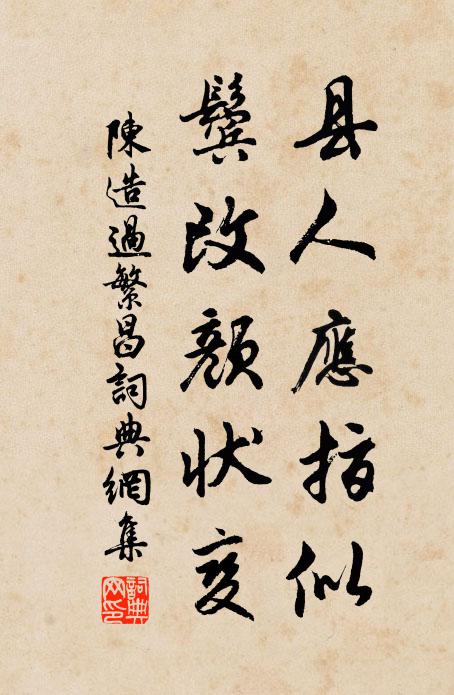 县人應指似
鬓改颜状变
陳造過繁昌詞典網集
詞典
网印